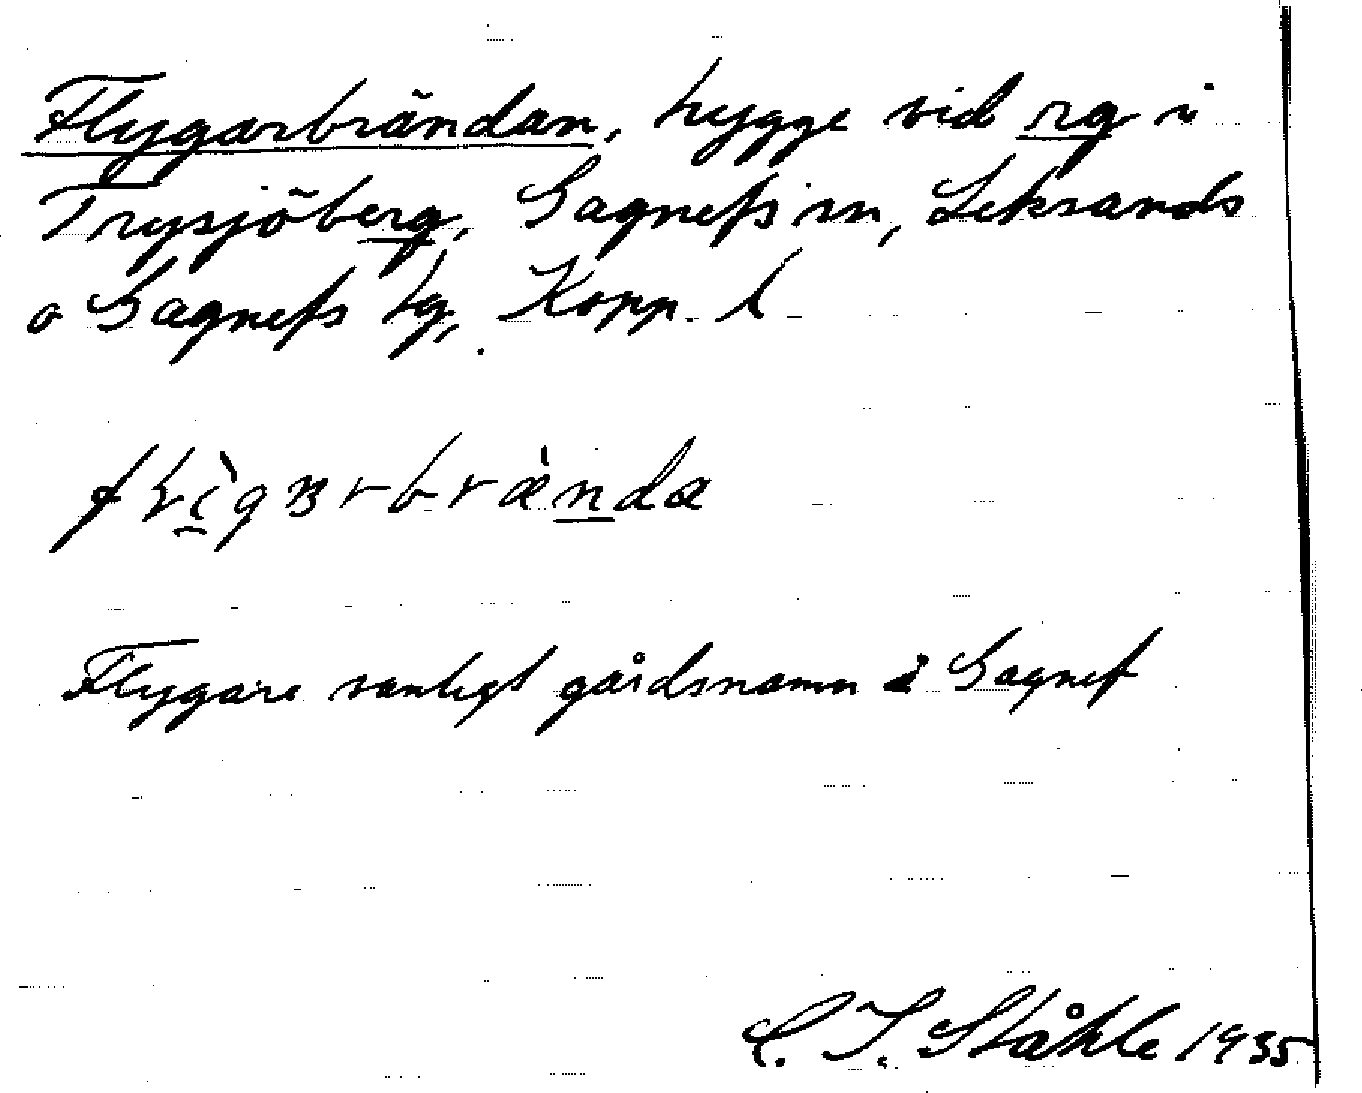 Flygarbrändan, hygge vid rg i
Trysjöberg, Gagnefs sn, Leksands
o Gagnefs tg, Kopp. l
Flygare vanligt gårdsnamn i Gagnef
C. I. Ståhle 1935